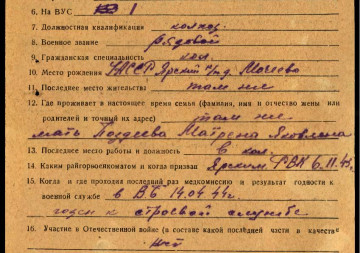 6. На ВУС 1
7. Должностная квалификация колхоз.
8. Военное звание рядовой
9. Гражданская специальность кол.
10. Место рождения УАССР Ярский с/р д. Мочеево
11. Последнее место жительства там же
12. Где проживает в настоящее время семья (фамилия, имя и отчество жены или
родителей и точный их адрес) там же
мать Поздеева Матрена Яковлевна
13. Последнее место работы и должность в кол.
14. Каким райгорвоенкоматом и когда призван Ярским РВК 6.11.43
15. Когда и где проходил последний раз медкомиссию и результат годности к
военной службе в ВБ 14.04.44г.
годен к строевой службе
16. Участие в Отечественной войне (в составе какой последней части и в качеств
нет